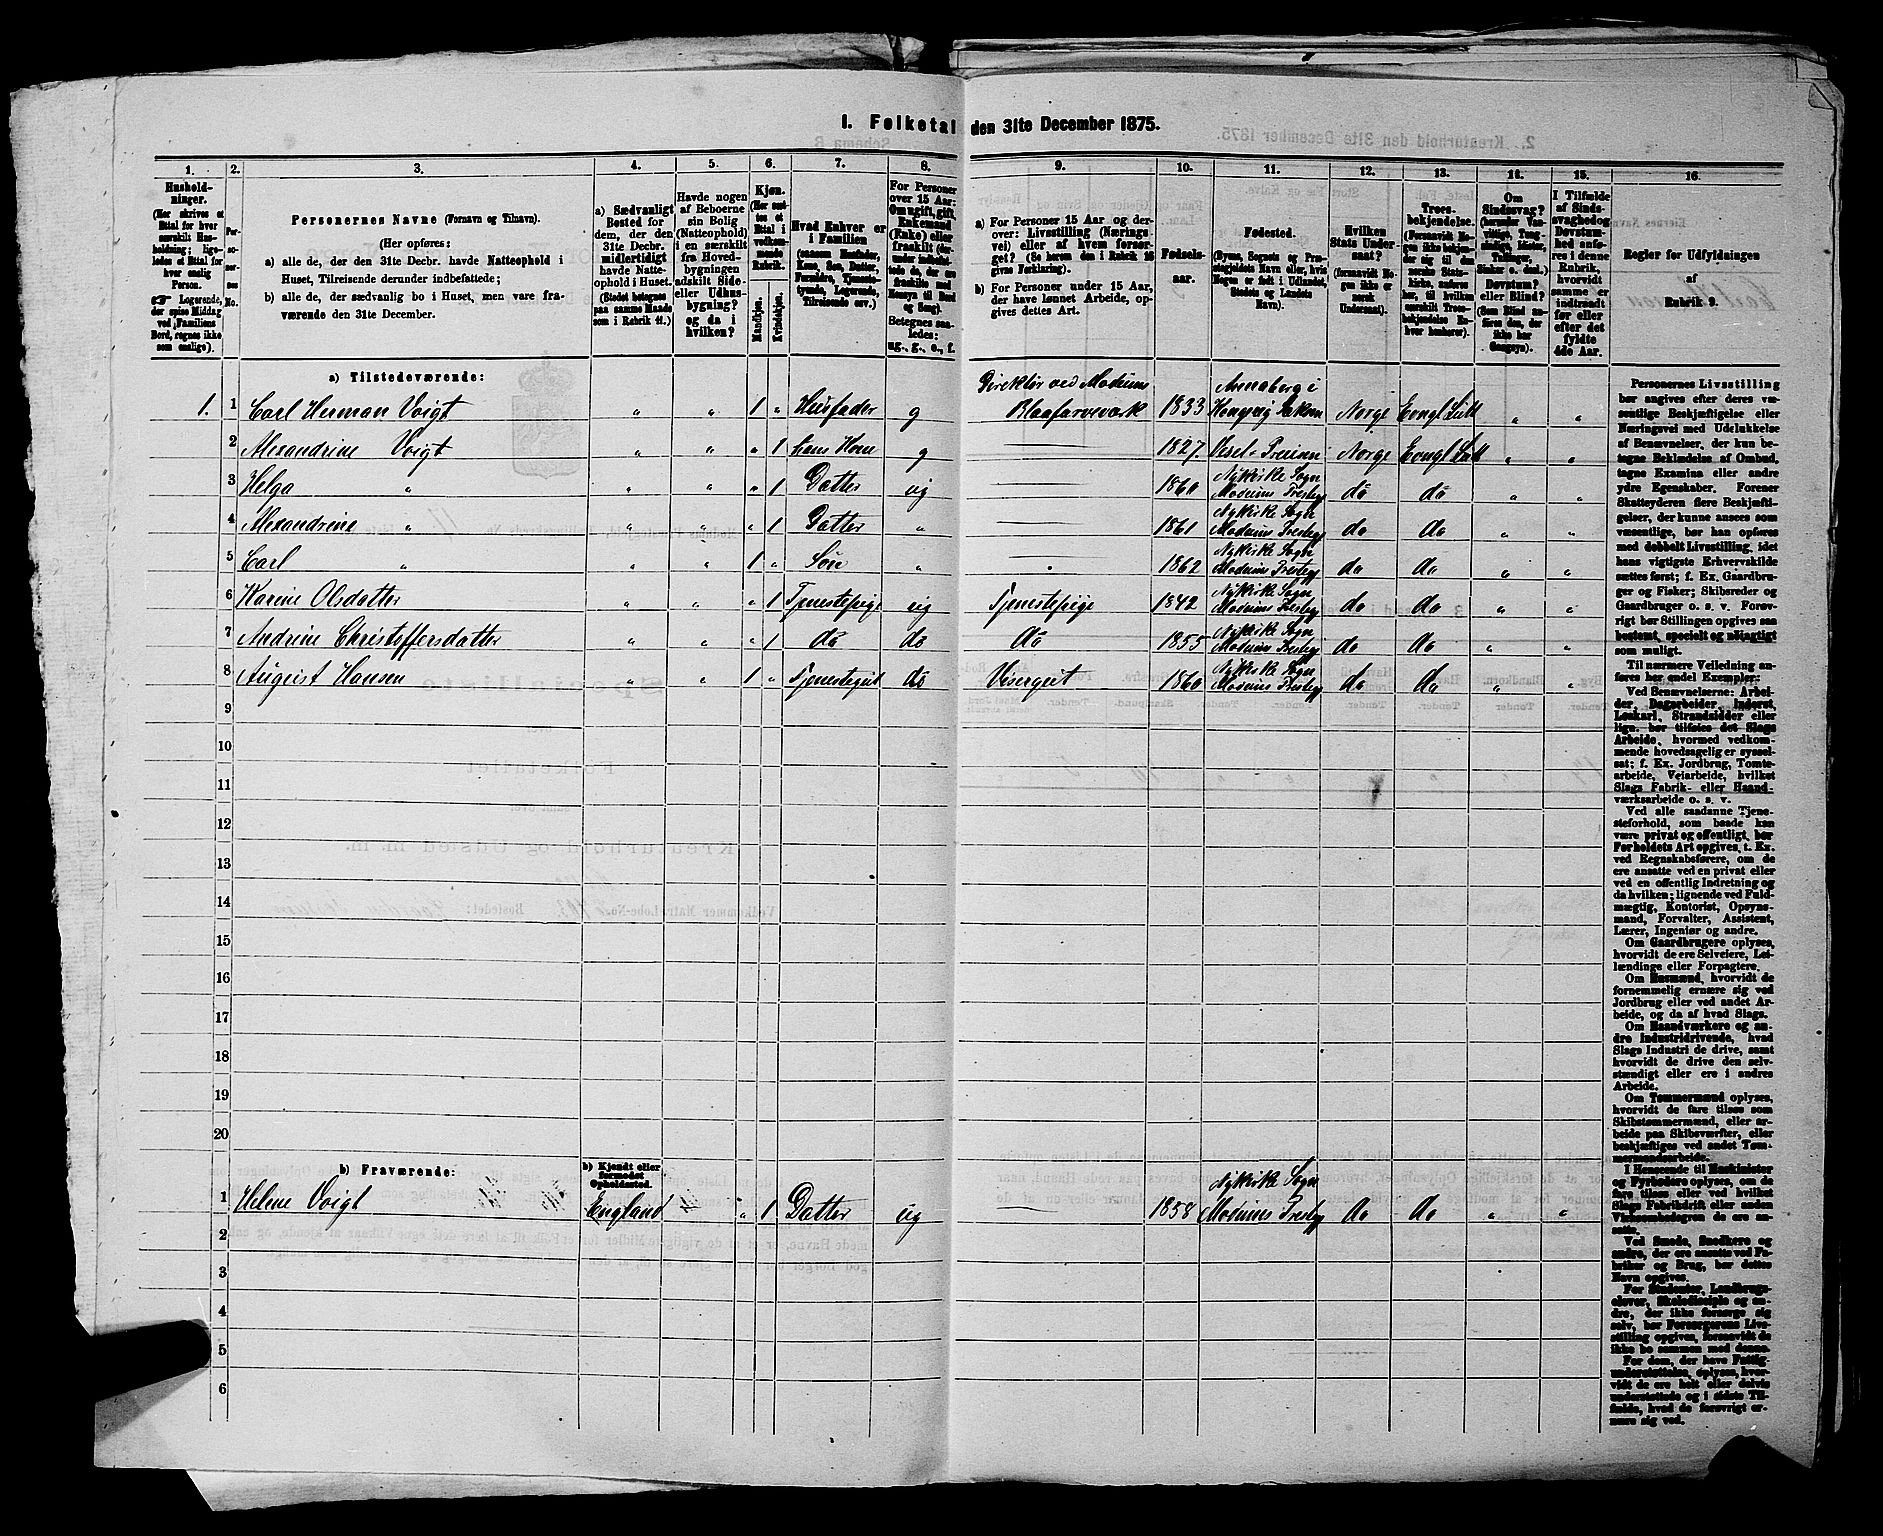 I. Folketal den 31te December 1875.
1. 2. 3. 4. 5. 6. 7. 8. 9. 10. 11. 12. 13. 14. 15. 16.
Hushold-
ninger.
(Her skrives et
Ettal for hver
særskilt Hus-
holdning; lige-
ledes et Ettal for
hver enslig
Person.
Logerende,
der spise Middag
ved Familiens
Bord, regnes ikke
som enslige).
Personernes No.
Personernes Navne (Fornavn og Tilnavn).
(Her opføres:
a) alle de, der den 31te Decbr. havde Natteophold i
Huset, Tilreisende derunder indbefattede;
b) alle de, der sædvanlig bo i Huset, men vare fra-
værende den 31te December.
a) Sædvanligt
Bosted for
dem, der den
31te Decbr.
midlertidigt
havde Natte-
ophold i Huset.
(Stedet betegnes
paa samme Maade
som i Rubrik 11.)
Havde nogen
af Beboerne
sin Bolig
(Natteophold)
i en særskilt
fra Hoved-
bygningen
adskilt Side-
eller Udhus-
bygning?
og da i
hvilken?
Kjøn.
(Her sæt-
tes et
Ettal i
vedkom-
mende
Rubrik.
Mandkjøn.
Kvindekjøn.
Hvad Enhver er
i Familien
(saasom Husfader,
Kone, Søn, Datter,
Forældre, Tjeneste-
tyende, Logerende,
Tilreisende osv.)
For Personer
over 15 Aar:
Om ugift, gift,
Enkemand
(Enke) eller
fraskilt
Betegnes saa-
ledes:
ug., g., e., f.
a) For Personer 15 Aar og der-
over: Livsstilling (Nærings-
vei) eller af hvem forsør-
get? (Se herom den i Rubrik 16
givne Forklaring).
b) For Personer under 15 Aar,
der have lønnet Arbeide, op-
gives dettes Art.
Fødsels-
aar.
Fødested.
(Byens, Sognets og Præ-
stegjeldets Navn eller, hvis
Nogen er født i Udlandet,
Stedets og Landets
Navn).
Hvilken
Stats Under-
saat?
(forsaavidt No-
gen ikke er
norsk
Undersaat).
Troes-
bekjendelse.
(Forsaavidt No-
gen ikke bekjen-
der sig til den
norske Stats-
kirke, anføres
her, til hvilken
særskilt Troes-
bekjendelse En-
hver henhører).
Om
Sindssvag?
Døvstum?
eller Blind?
(Som Blind an-
føres den, der
ikke har
Gangsyn).
I Tilfælde
af Sinds-
svaghed og
Døvstum-
hed anfø-
res i denne
Rubrik,
hvorvidt
samme er
indtraadt
før eller
efter det
fyldte
4de Aar.
Regler for Udfyldningen
af
Rubrik 9.
a) Tilstedeværende:
1. 1 Carl Herman Voigt " " 1 " Husfader g Direktör ved Modums Blaafarveværk 1833 Annaberg i Kongerig Saksen Norge Evngl Luth " "
2 Alexandrine Voigt " " " 1 hans Kone g 1827 Vesel i Preisen Norge Evngl Luth " "
3 Helga " " " " 1 Datter ug 1860 Nykirke Sogn Modums Presteg do do " "
4 Alexandrine " " " " 1 Datter " 1861 Nykirke Sogn Modums Presteg do do " "
5 Carl " " " 1 " Sön " " 1862 Nykirke Sogn Modums Presteg do do " "
6 Karine Olsdatter " " " 1 Tjenestepige ug Tjenestepige 1842 Nykirke Sogn Modums Presteg do do " "
7 Andrine Christoffersdatter " " " 1 do do do 1855 Nykirke Sogn Modums Presteg do do " "
8 August Hansen " " 1 " Tjenestegut do Visergut 1860 Nykirke Sogn Modums Presteg do do " "
9
10
11
12
13
14
15
16
17
18
19
20
b) Fraværende:
b) Kjendt eller
formodet
Opholdssted.
1 Helene Voigt England " 1 Datter ug 1858 Nykirke Sogn Modums Presteg do do " "
2
3
4
5
6
Personernes Livsstilling
bør angives efter deres væ-
sentlige Beskjæftigelse eller
Næringsvei med Udelukkelse
af Benævnelser, der kun be-
tegne Beklædelse af Ombud,
tagne Examina eller andre
ydre Egenskaber. Forener
Skatteyderen flere Beskjæfti-
gelser, der kunne ansees som
væsentlige, bør han opføres
med dobbelt Livsstilling, idet
hans vigtigste Erhvervskilde
sættes først; f. Ex. Gaardbru-
ger og Fisker; Skibsreder og
Gaardbruger o. s. v. Forøv-
rigt bør Stillingen opgives saa
bestemt, specielt og nøiagtigt
som muligt.
Til nærmere Veiledning an-
føres her endel Exempler:
Ved Benævnelserne: Arbei-
der, Dagarbeider, Inderst,
Løskarl, Strandsidder eller
lign. bør tilføies det Slags
Arbeide, hvormed vedkom-
mende hovedsagelig er syssel-
sat; f. Ex. Jordbrug, Tomte-
arbeide, Veiarbeide, hvilket
Slags Fabrik- eller Haand-
værksarbeide o. s. v.
Ved alle saadanne Tjene-
steforhold, som baade kan
være privat og offentligt, bør
Forholdets Art opgives, t. Ex.
ved Regnskabsførere, om de
ere ansatte ved en privat eller
ved en offentlig Indretning og
da hvilken; lignende ved Fuld-
mægtig, Kontorist, Opsyns-
mand, Forvalter, Assistent,
Lærer, Ingeniør og andre.
Om Gaardbrugere oplyses,
hvorvidt de ere Selveiere, Lei-
lændinge eller Forpagtere.
Om Husmænd, hvorvidt de
fornemmelig ernære sig ved
Jordbrug eller ved andet Ar-
beide, og da af hvad Slags.
Om Haandværkere og an-
dre Industridrivende, hvad
Slags Industri de drive, samt
hvorvidt de drive den selv-
stændigt eller ere i andres
Arbeide.
Om Tømmermænd oplyses,
hvorvidt de fare tilsøs som
Skibstømmermænd, eller ar-
beide paa Skibsværfter, eller
beskjæftiges ved andet Tøm-
mermandsarbeide.
I Henseende til Maskinister
og Fyrbødere oplyses, om de
fare tilsøs eller ved hvilket
Slags Fabrikdrift eller anden
Virksomhed de ere an-
satte.
Ved Smede, Snedkere og
andre, der ere ansatte ved Fa-
briker og Brug, bør dettes
Navn opgives.
For Studenter, Landbrugs-
elever, Skoledisciple og an-
dre, der ikke forsørge sig
selv, bør Forsørgerens Livs-
stilling opgives, forsaavidt de
ikke bo sammen med denne.
For dem, der have Fattig-
understøttelse, oplyses, hvor-
vidt de ere helt eller delvis
understøttede og i sidste Til-
fælde, hvad de forøvrigt er-
nære sig ved.